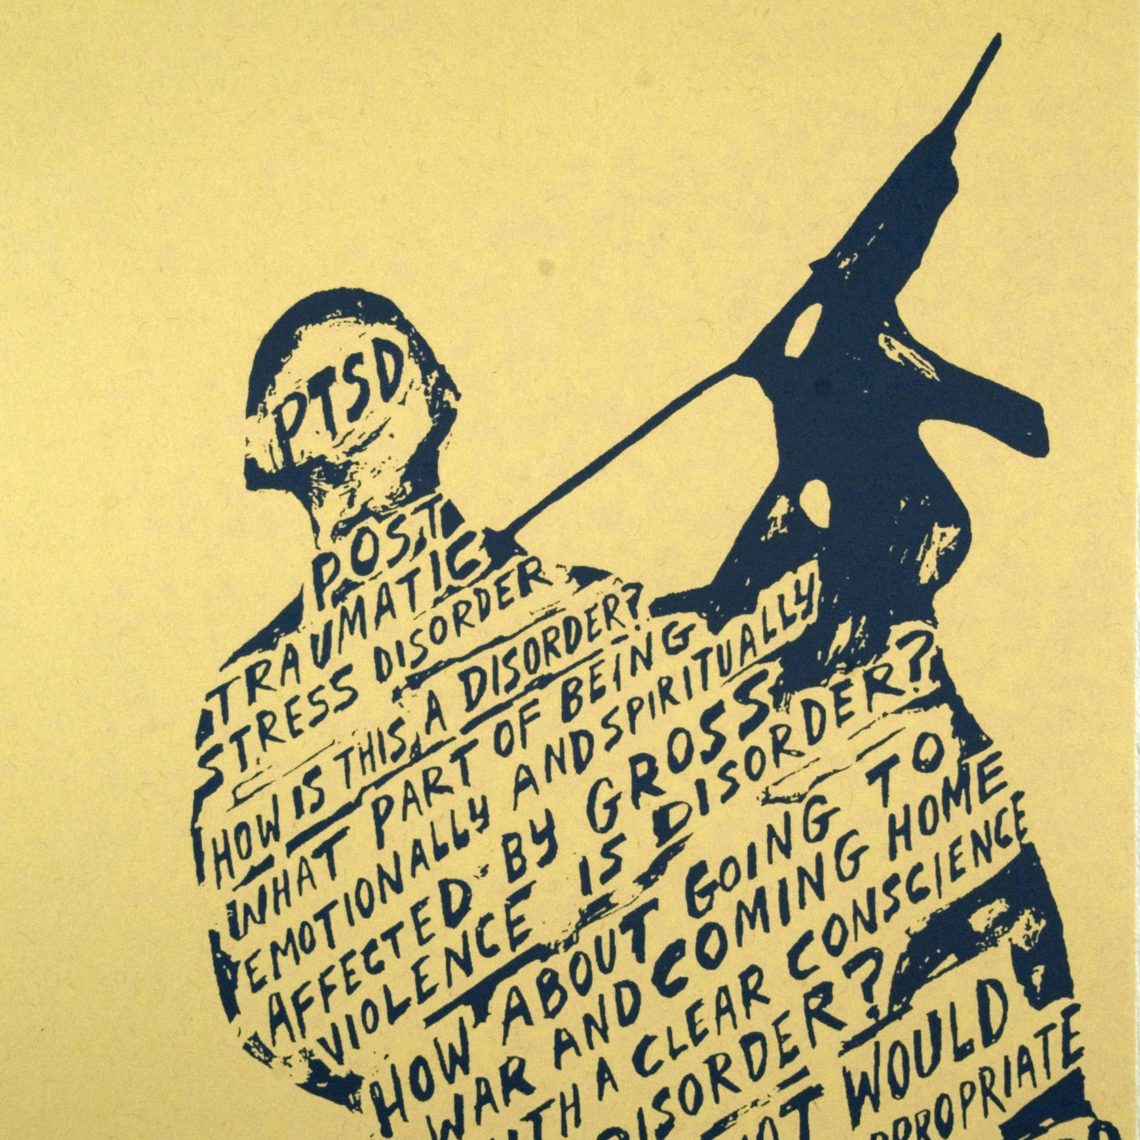 PTSD
POST
TRAUMATIC
STRESS DISORDER
HOW IS THIS A DISORDER?
WHAT PART OF BEING
EMOTIONALLY AND SPIRITUALLY
AFFECTED BY GROSS
VIOLENCE IS DISORDER?
HOW ABOUT GOING TO
WAR AND COMING HOME
WITH A CLEAR CONSCIENCE
DISORDER?
WOULD
APPROPRIATE